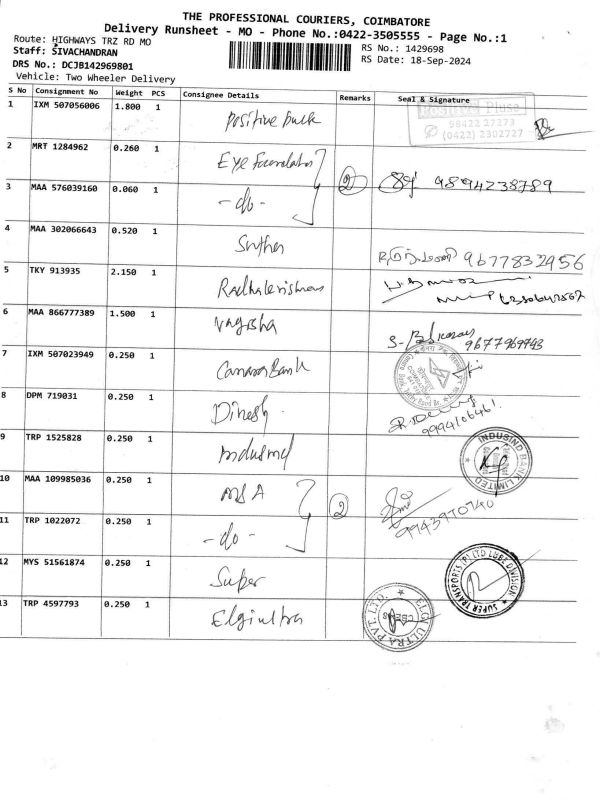 THE PROFESSIONAL COURIERS, COIMBATORE
Delivery Runsheet - MO - Phone No.:0422-3505555 - Page No.:1
Route: HIGHWAYS TRZ RD MO
RS No.: 1429698
Staff: SIVACHANDRAN
RS Date: 18-Sep-2024
DRS No.: DCJB142969801
Vehicle: Two Wheeler Delivery
S No Consignment No Weight PCS Consignee Details Remarks Seal & Signature
1 IXM 507056006 1.800 1 Positive
98422 27273
(0422) 2302727
2 MRT 1284962 0.260 1 Eye Foundation
2 9894238789
3 MAA 576039160 0.060 1 -do-
4 MAA 302066643 0.520 1 9677832956
5 TKY 913935 2.150 1 Radhakrishnan
6 MAA 866777389 1.500 1 Vagisha
9677969743
7 IXM 507023949 0.250 1 Canara Bank
8 DPM 719031 0.250 1 Dinesh
9994106461
9 TRP 1525828 0.250 1 Indusind
INDUSIND BANK LIMITED
10 MAA 109985036 0.250 1 MSA
2 9943970740
11 TRP 1022072 0.250 1 -do-
12 MYS 51561874 0.250 1 Super
SUPER TRANSPORTS (P) LTD LUBE DIVISION
13 TRP 4597793 0.250 1 Elgi ultra
ELGI ULTRA PVT. LTD.
CBE5